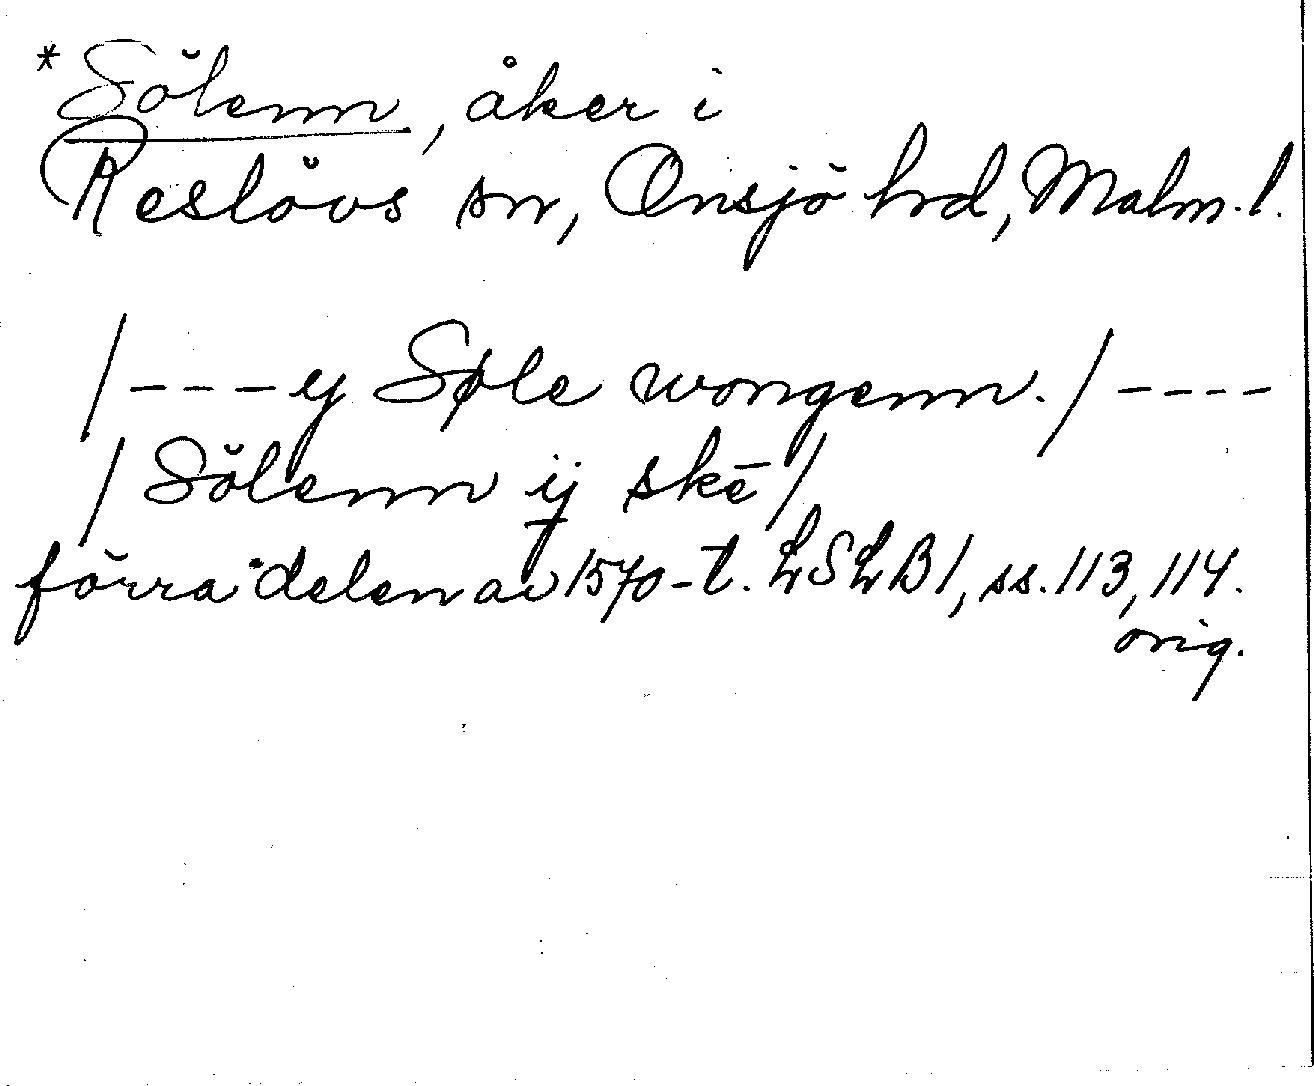 * Sölenn, åker i
Reslövs sn, Onsjö hrd, Malm. l.
/---ej Søle wongenn./----
/Sölenn ij skē/
förra delen av 1570-t. LSLB1, ss. 113, 114.
orig.